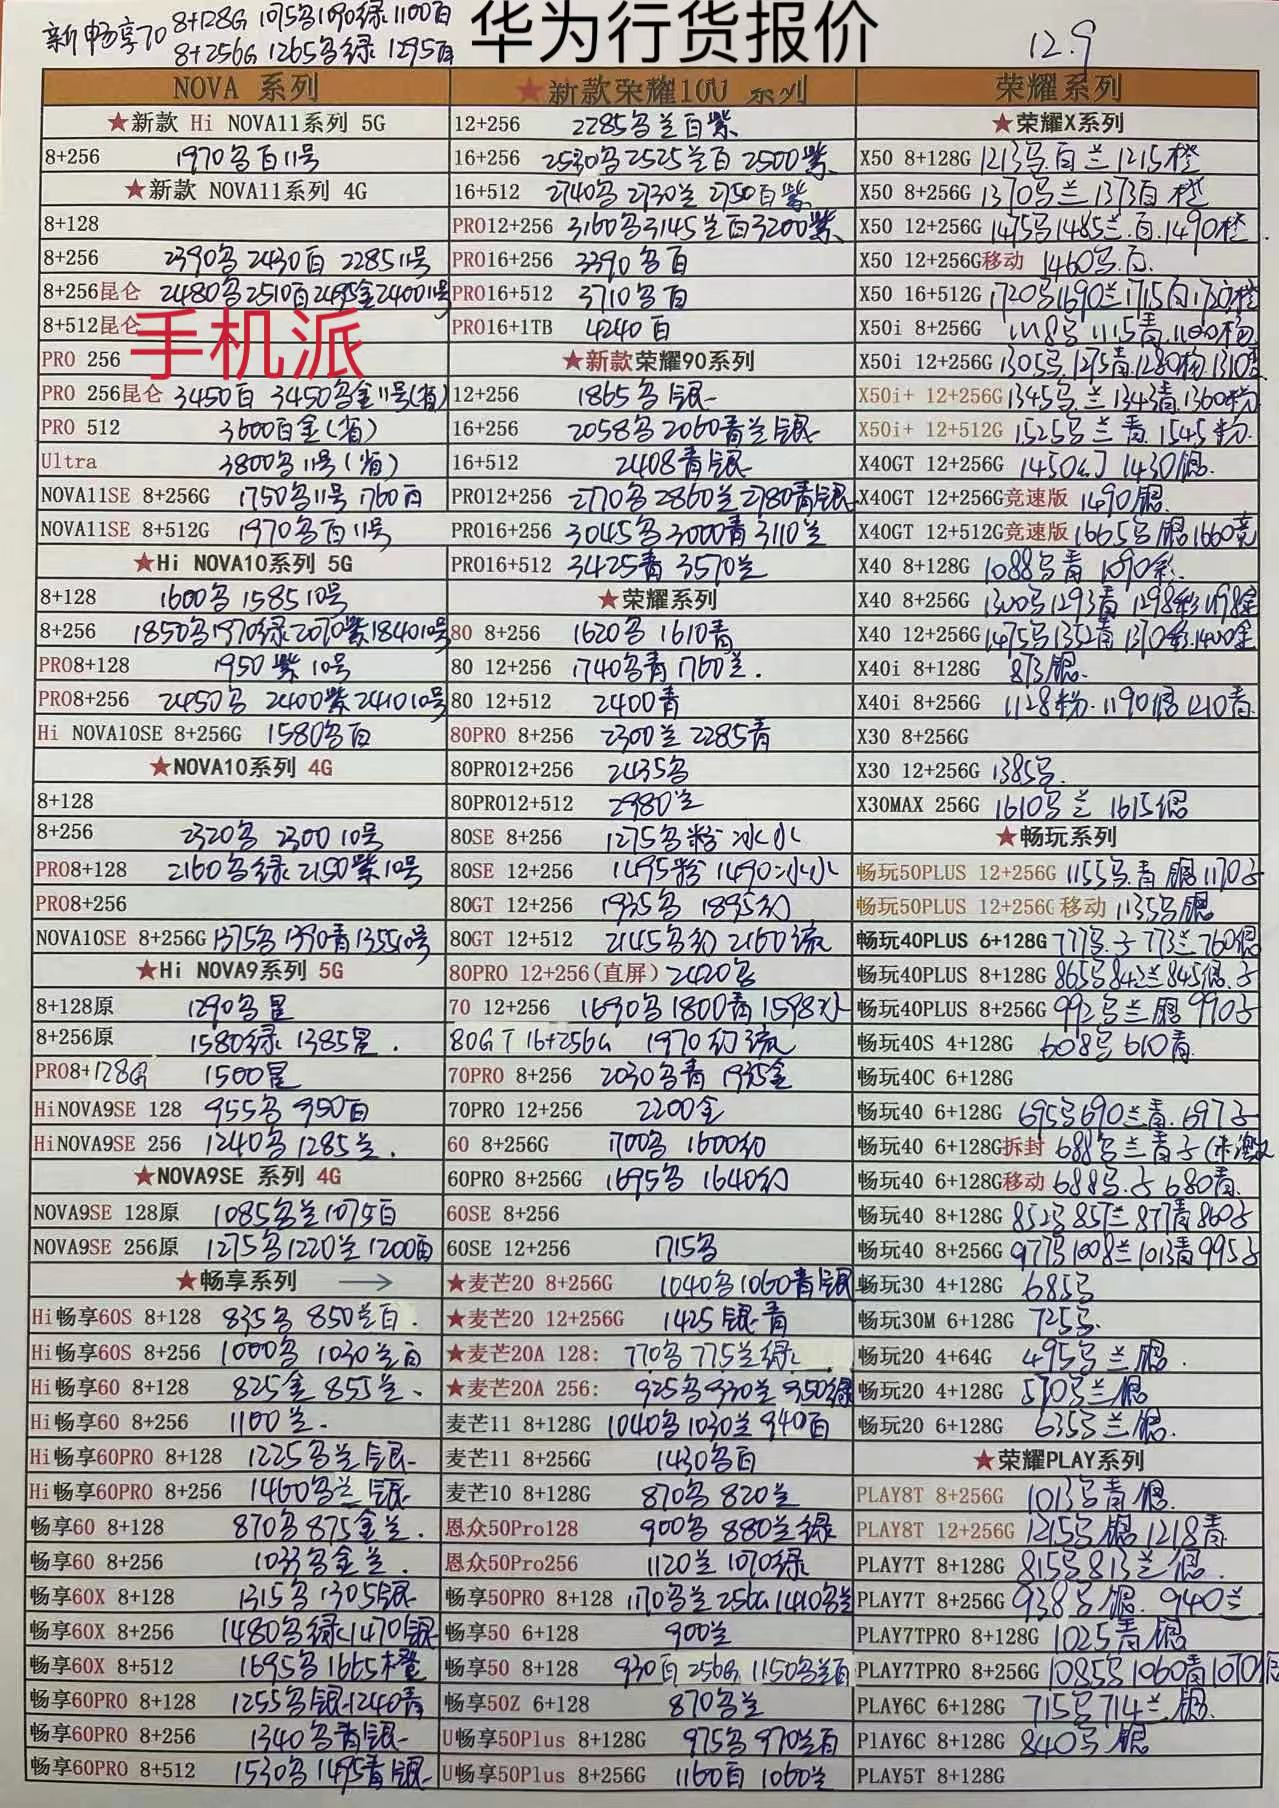 华为行货报价
12.9
新畅享70 8+128G 1075名1090绿1100白
8+256G 1265名绿 1295白
手机派
NOVA 系列
★新款 Hi NOVA11系列 5G
8+256 1970名白11号
★新款 NOVA11系列 4G
8+128
8+256 2390名 2430白 2285 11号
8+256昆仑 2480名2510白2495金2400 11号
8+512昆仑
PRO 256
PRO 256昆仑 3450白 3450名金11号(省)
PRO 512 3600白金(省)
Ultra 3800名11号(省)
NOVA11SE 8+256G 1750名11号 1760白
NOVA11SE 8+512G 1970名白11号
★Hi NOVA10系列 5G
8+128 1600名 1585 10号
8+256 1850名1970绿2070紫1840 10号
PRO8+128 1950紫10号
PRO8+256 2450名 2400紫 2410 10号
Hi NOVA10SE 8+256G 1580名白
★NOVA10系列 4G
8+128
8+256 2320名 2300 10号
PRO8+128 2160名绿2150紫10号
PRO8+256
NOVA10SE 8+256G 1375名1390青1355 10号
★Hi NOVA9系列 5G
8+128原 1290名星
8+256原 1580绿 1385星.
PRO8+128G 1500星
HiNOVA9SE 128 955名 950白
HiNOVA9SE 256 1240名1285兰.
★NOVA9SE 系列 4G
NOVA9SE 128原 1085名兰1075白
NOVA9SE 256原 1275名1220兰1200白
★畅享系列 →
Hi畅享60S 8+128 835名 850兰白.
Hi畅享60S 8+256 1000名 1030兰白
Hi畅享60 8+128 825金 855兰、
Hi畅享60 8+256 1100兰.
Hi畅享60PRO 8+128 1225名兰银
Hi畅享60PRO 8+256 1460名兰 银
畅享60 8+128 870名875金兰.
畅享60 8+256 1035名金兰.
畅享60X 8+128 1315名1305银
畅享60X 8+256 1480名绿1470银
畅享60X 8+512 1695名1665橙
畅享60PRO 8+128 1255名银1240青
畅享60PRO 8+256 1340名青银
畅享60PRO 8+512 1530名1495青银
★新款荣耀100 系列
12+256 2285名兰白紫
16+256 2530名2525兰白2500紫
16+512 2740名2730兰2750白紫
PRO12+256 3160名3145兰白3200紫
PRO16+256 3390名白
PRO16+512 3710名白
PRO16+1TB 4240白
★新款荣耀90系列
12+256 1865名银
16+256 2058名2060青兰银
16+512 2408青银
PRO12+256 2770名2860兰2780青银
PRO16+256 3045名3000青3110兰
PRO16+512 3425青 3570兰
★荣耀系列
80 8+256 1620名 1610青
80 12+256 1740名青1760兰.
80 12+512 2400青
80PRO 8+256 2300兰 2285青
80PRO12+256 2435名
80PRO12+512 2980兰
80SE 8+256 1275名粉冰水
80SE 12+256 1495粉 1490冰水
80GT 12+256 1935名 1895幻
80GT 12+512 2145名幻2160流
80PRO 12+256(直屏) 2420名
70 12+256 1690名1800青1598冰
80GT 16+256G 1970幻流
70PRO 8+256 2030名青 1935金
70PRO 12+256 2200金
60 8+256G 1700名 1600幻
60PRO 8+256G 1695名 1640幻
60SE 8+256
60SE 12+256 1715名
★麦芒20 8+256G 1040名1060青银
★麦芒20 12+256G 1425银青
★麦芒20A 128: 770名775兰绿
★麦芒20A 256: 925名930兰950绿
麦芒11 8+128G 1040名1030兰940白
麦芒11 8+256G 1430名白
麦芒10 8+128G 870名820兰
恩众50Pro128 900名 880兰绿
恩众50Pro256 1120兰1070绿
畅享50PRO 8+128 1170名兰256G1410名兰
畅享50 6+128 900兰
畅享50 8+128 930白256G 1150名兰白
畅享50Z 6+128 870名兰
U畅享50Plus 8+128G 975名970兰白
U畅享50Plus 8+256G 1160白 1060兰
荣耀系列
★荣耀X系列
X50 8+128G 1213名白兰1215橙
X50 8+256G 1370名兰1373白橙
X50 12+256G 1475名1485兰.白.1490橙.
X50 12+256G移动 1460名.白.
X50 16+512G 1720名1690兰1715白1720橙
X50i 8+256G 1118名1115青.1100粉
X50i 12+256G 1305名1275青1280粉1310兰
X50i+ 12+256G 1345名.兰1343青.1360粉
X50i+ 12+512G 1525名兰青1545粉.
X40GT 12+256G 1450幻1430银.
X40GT 12+256G竞速版 1490银.
X40GT 12+512G竞速版 1665名银1660竞
X40 8+128G 1088名青 1090彩.
X40 8+256G 1300名1293青1298彩1498金
X40 12+256G 1475名1352青1370彩.1400金
X40i 8+128G 873银.
X40i 8+256G 1128粉.1190银1210青.
X30 8+256G
X30 12+256G 1385名.
X30MAX 256G 1610名兰 1615银
★畅玩系列
畅玩50PLUS 12+256G 1155名.青银1170子
畅玩50PLUS 12+256G移动 1135名银
畅玩40PLUS 6+128G 777名.子773兰760银
畅玩40PLUS 8+128G 865名842兰845银.子
畅玩40PLUS 8+256G 992名兰银990子
畅玩40S 4+128G 608名610青.
畅玩40C 6+128G
畅玩40 6+128G 695名690兰青.697子
畅玩40 6+128G拆封 688名兰青子(未激
畅玩40 6+128G移动 688名.子680青.
畅玩40 8+128G 852名857兰877青860子
畅玩40 8+256G 977名1008兰1013青995子
畅玩30 4+128G 685名
畅玩30M 6+128G 725名.
畅玩20 4+64G 495名兰银.
畅玩20 4+128G 570名兰银
畅玩20 6+128G 635名兰银.
★荣耀PLAY系列
PLAY8T 8+256G 1013名青银.
PLAY8T 12+256G 1215名银1218青
PLAY7T 8+128G 815名813兰银.
PLAY7T 8+256G 938名银.940兰
PLAY7TPRO 8+128G 1025青银
PLAY7TPRO 8+256G 1085名1060青1070银
PLAY6C 6+128G 715名714兰银.
PlAY6C 8+128G 840名银
PLAY5T 8+128G